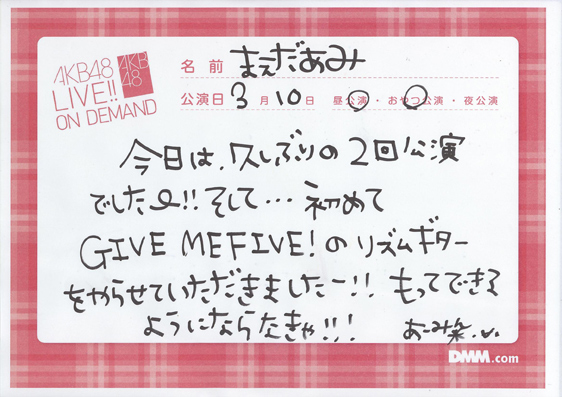 AKB48
LIVE!!
ON DEMAND
AKB
48
名前 まえだあみ
公演日 3月10日 昼公演・おやつ公演・夜公演
今日は、久しぶりの2回公演
でした!!そして…初めて
GIVE ME FIVE!のリズムギター
をやらせていただきましたー!!もってできる
ようにならなきゃ!!!
あーみ
DMM.com